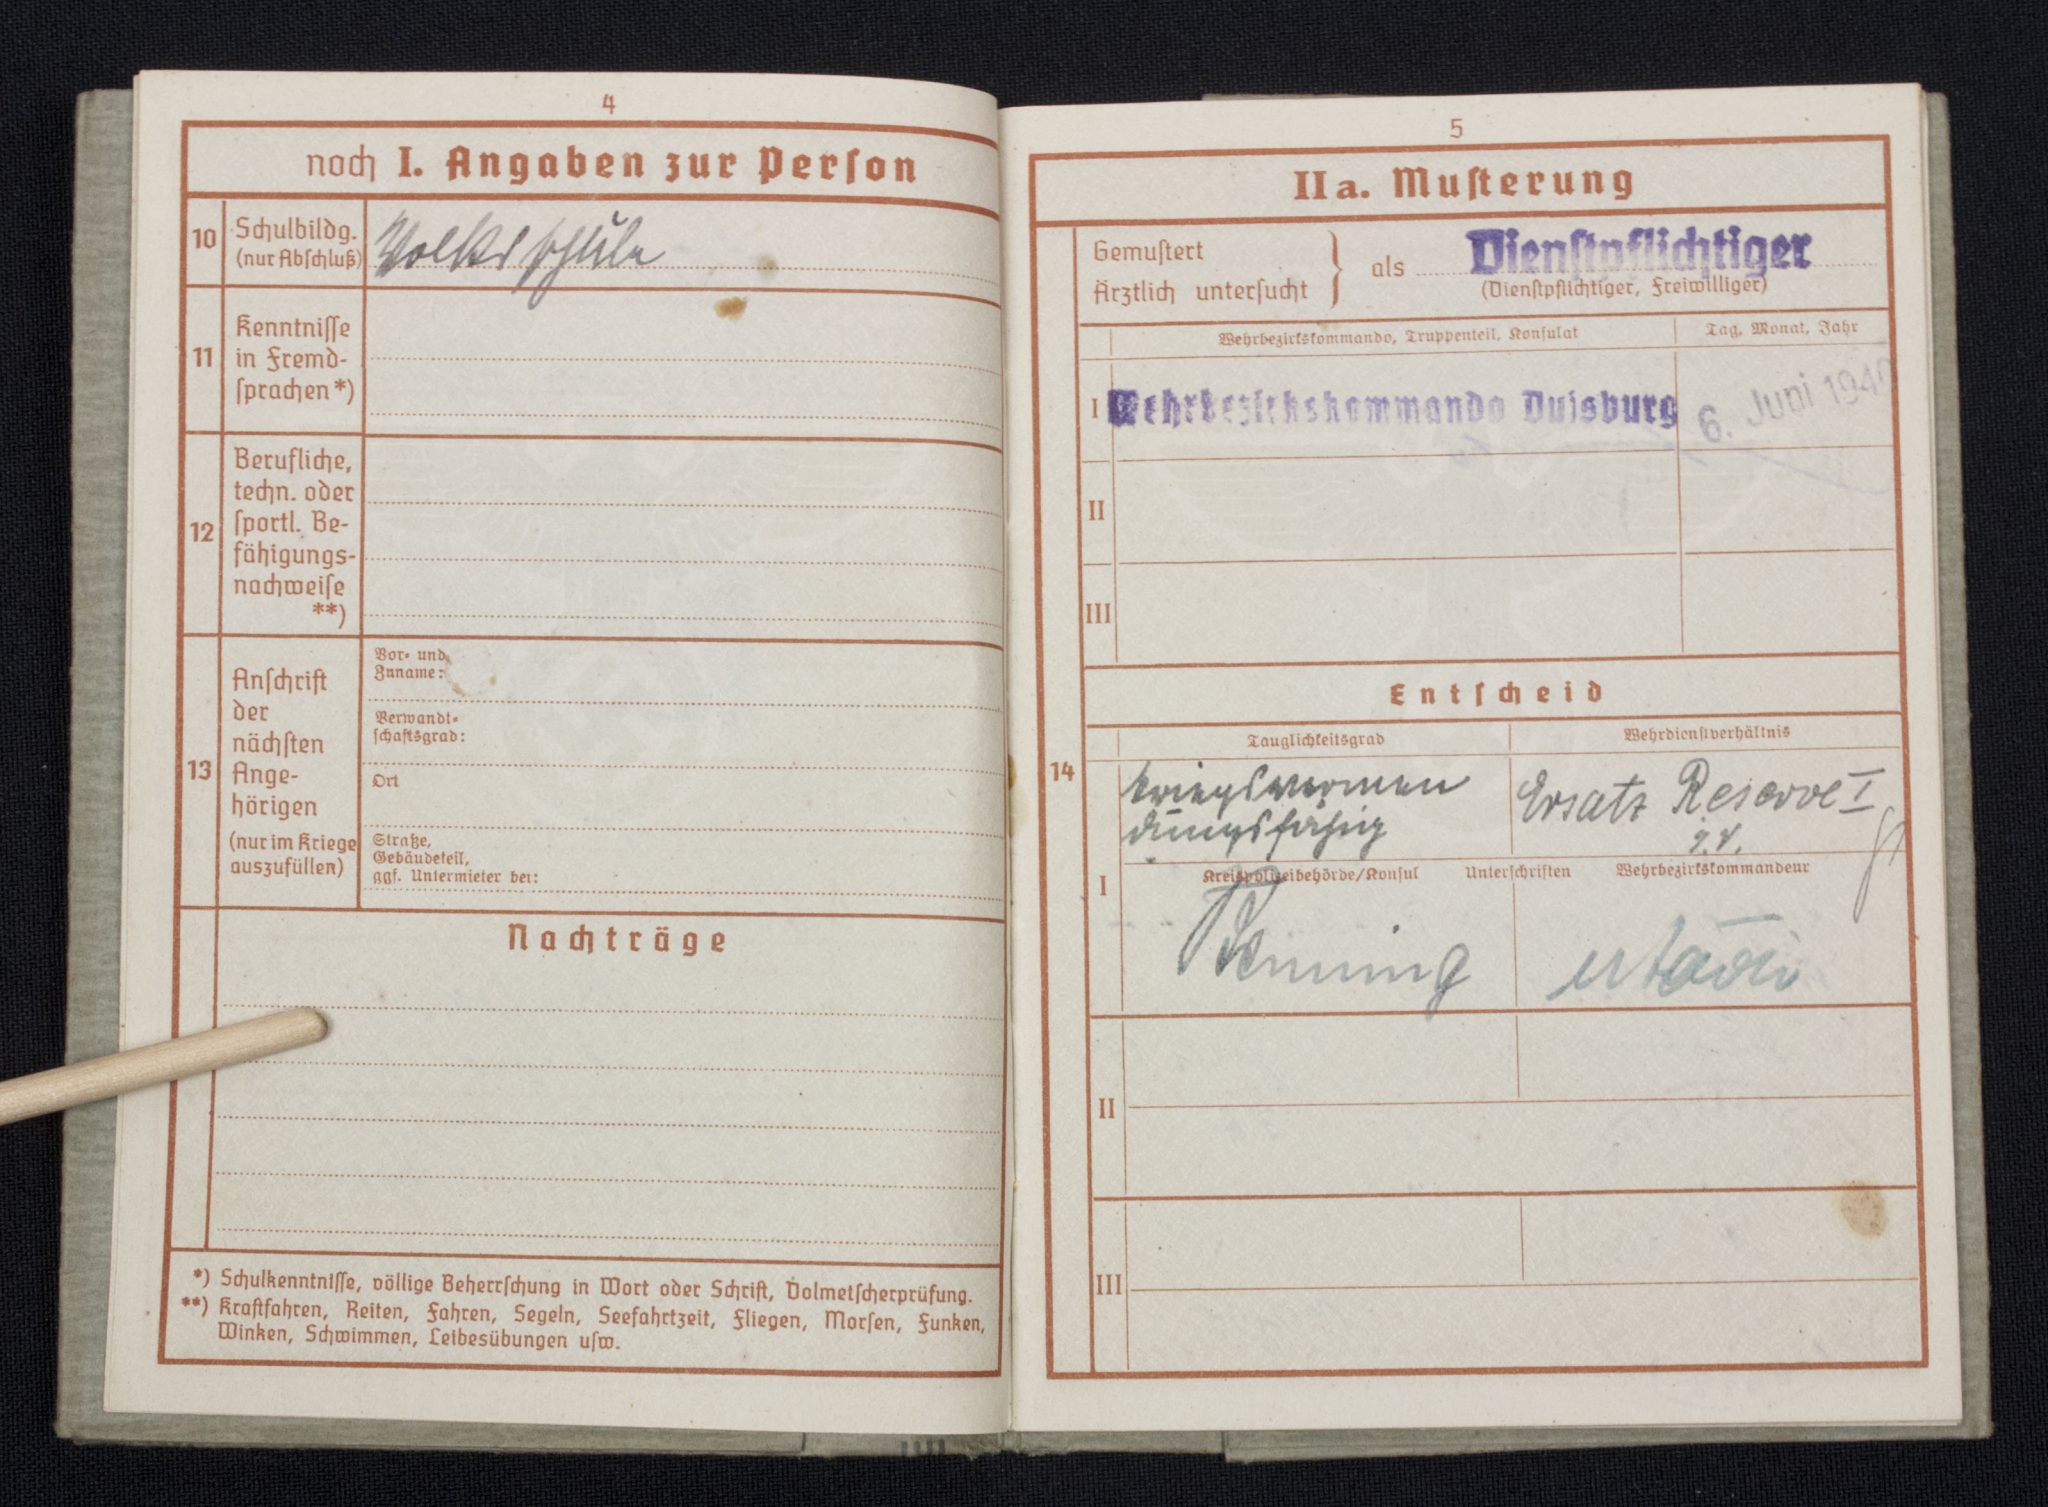 4
noch I. Angaben zur Perſon
10 Schulbildg.
(nur Abſchluß)
Volksschule
11 Kenntniſſe
in Fremd-
ſprachen *)
12 Berufliche,
techn. oder
ſportl. Be-
fähigungs-
nachweiſe
**)
13 Anſchrift
der
nächſten
Ange-
hörigen
(nur im Kriege
auszufüllen)
Vor- und
Zuname:
Verwandt-
ſchaftsgrad:
Ort
Straße,
Gebäudeteil,
ggf. Untermieter bei:
Nachträge
*) Schulkenntniſſe, völlige Beherrſchung in Wort oder Schrift, Dolmetſcherprüfung.
**) Kraftfahren, Reiten, Fahren, Segeln, Seefahrtzeit, Fliegen, Morſen, Funken,
Winken, Schwimmen, Leibesübungen uſw.
5
IIa. Muſterung
Gemuſtert
Ärztlich unterſucht
als Dienſtpflichtiger
(Dienſtpflichtiger, Freiwilliger)
Wehrbezirkskommando, Truppenteil, Konſulat
Tag, Monat, Jahr
I Wehrbezirkskommando Duisburg 6. Juni 1940
II
III
Entſcheid
Tauglichkeitsgrad
Wehrdienſtverhältnis
14
kriegsverwen
dungsfähig
Ersatz Reserve I
I
Kreispolizeibehörde/Konſul Unterſchriften Wehrbezirkskommandeur
II
III